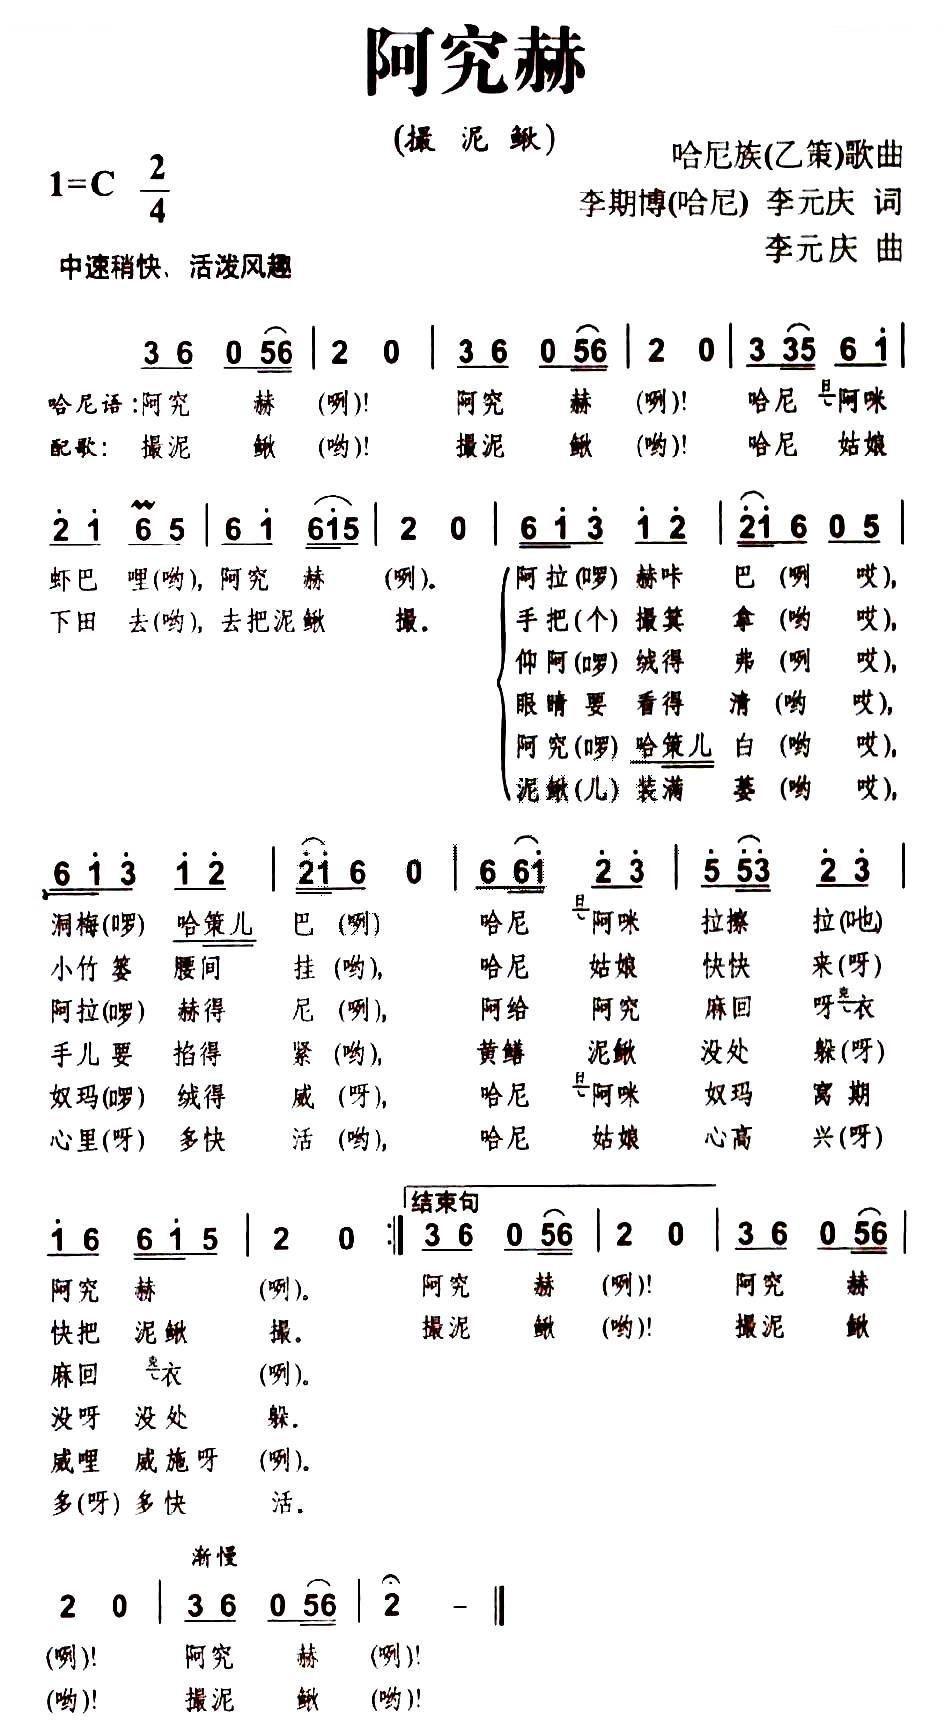 阿究赫
(撮 泥 鳅)
哈尼族(乙策)歌曲
1=C 2/4
李期博(哈尼) 李元庆 词
李元庆 曲
中速稍快、活泼风趣
3 6 0 56 | 2 0 | 3 6 0 56 | 2 0 | 3 35 6 1 |
哈尼语:阿究 赫 (咧)! 阿究 赫 (咧)! 哈尼 阿咪
配歌: 撮泥 鳅 (哟)! 撮泥 鳅 (哟)! 哈尼 姑娘
2 1 6 5 | 6 1 615 | 2 0 | 6 1 3 1 2 | 21 6 0 5 |
虾巴 哩(哟), 阿究 赫 (咧)。 阿拉(啰) 赫咔 巴 (咧 哎),
下田 去(哟), 去把泥鳅 撮. 手把(个) 撮箕 拿 (哟 哎),
仰阿(啰) 绒得 弗 (咧 哎),
眼睛 要 看得 清 (哟 哎),
阿究(啰) 哈策儿 白 (哟 哎),
泥鳅(儿) 装满 蒌 (哟 哎),
6 1 3 1 2 | 21 6 0 | 6 61 2 3 | 5 53 2 3 |
洞梅(啰) 哈策儿 巴 (咧) 哈尼 阿咪 拉擦 拉(吔)
小竹 篓 腰间 挂 (哟), 哈尼 姑娘 快快 来(呀)
阿拉(啰) 赫得 尼 (咧), 阿给 阿究 麻回 呀 衣
手儿 要 掐得 紧 (哟), 黄鳝 泥鳅 没处 躲(呀)
奴玛(啰) 绒得 威 (呀), 哈尼 阿咪 奴玛 窝 期
心里(呀) 多快 活 (哟), 哈尼 姑娘 心高 兴(呀)
结束句
1 6 6 1 5 | 2 0 :| 3 6 0 56 | 2 0 | 3 6 0 56 |
阿究 赫 (咧)。 阿究 赫 (咧)! 阿究 赫
快把 泥鳅 撮. 撮泥 鳅 (哟)! 撮泥 鳅
麻回 衣 (咧)。
没呀 没处 躲.
威哩 威施呀 (咧)。
多(呀) 多快 活.
渐慢
2 0 | 3 6 0 56 | 2 - ‖
(咧)! 阿究 赫 (咧)!
(哟)! 撮泥 鳅 (哟)!